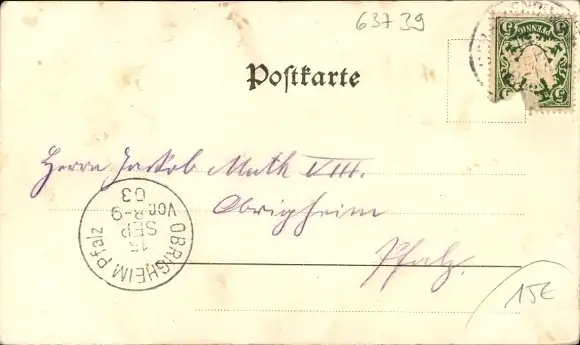 63739
5 PFENNIG 5
Postkarte
Herrn Jakob Muth VIII.
Obrigheim
Pfalz.
OBRIGHEIM Pfalz
15
SEP
Vor. 8-9
03
15€